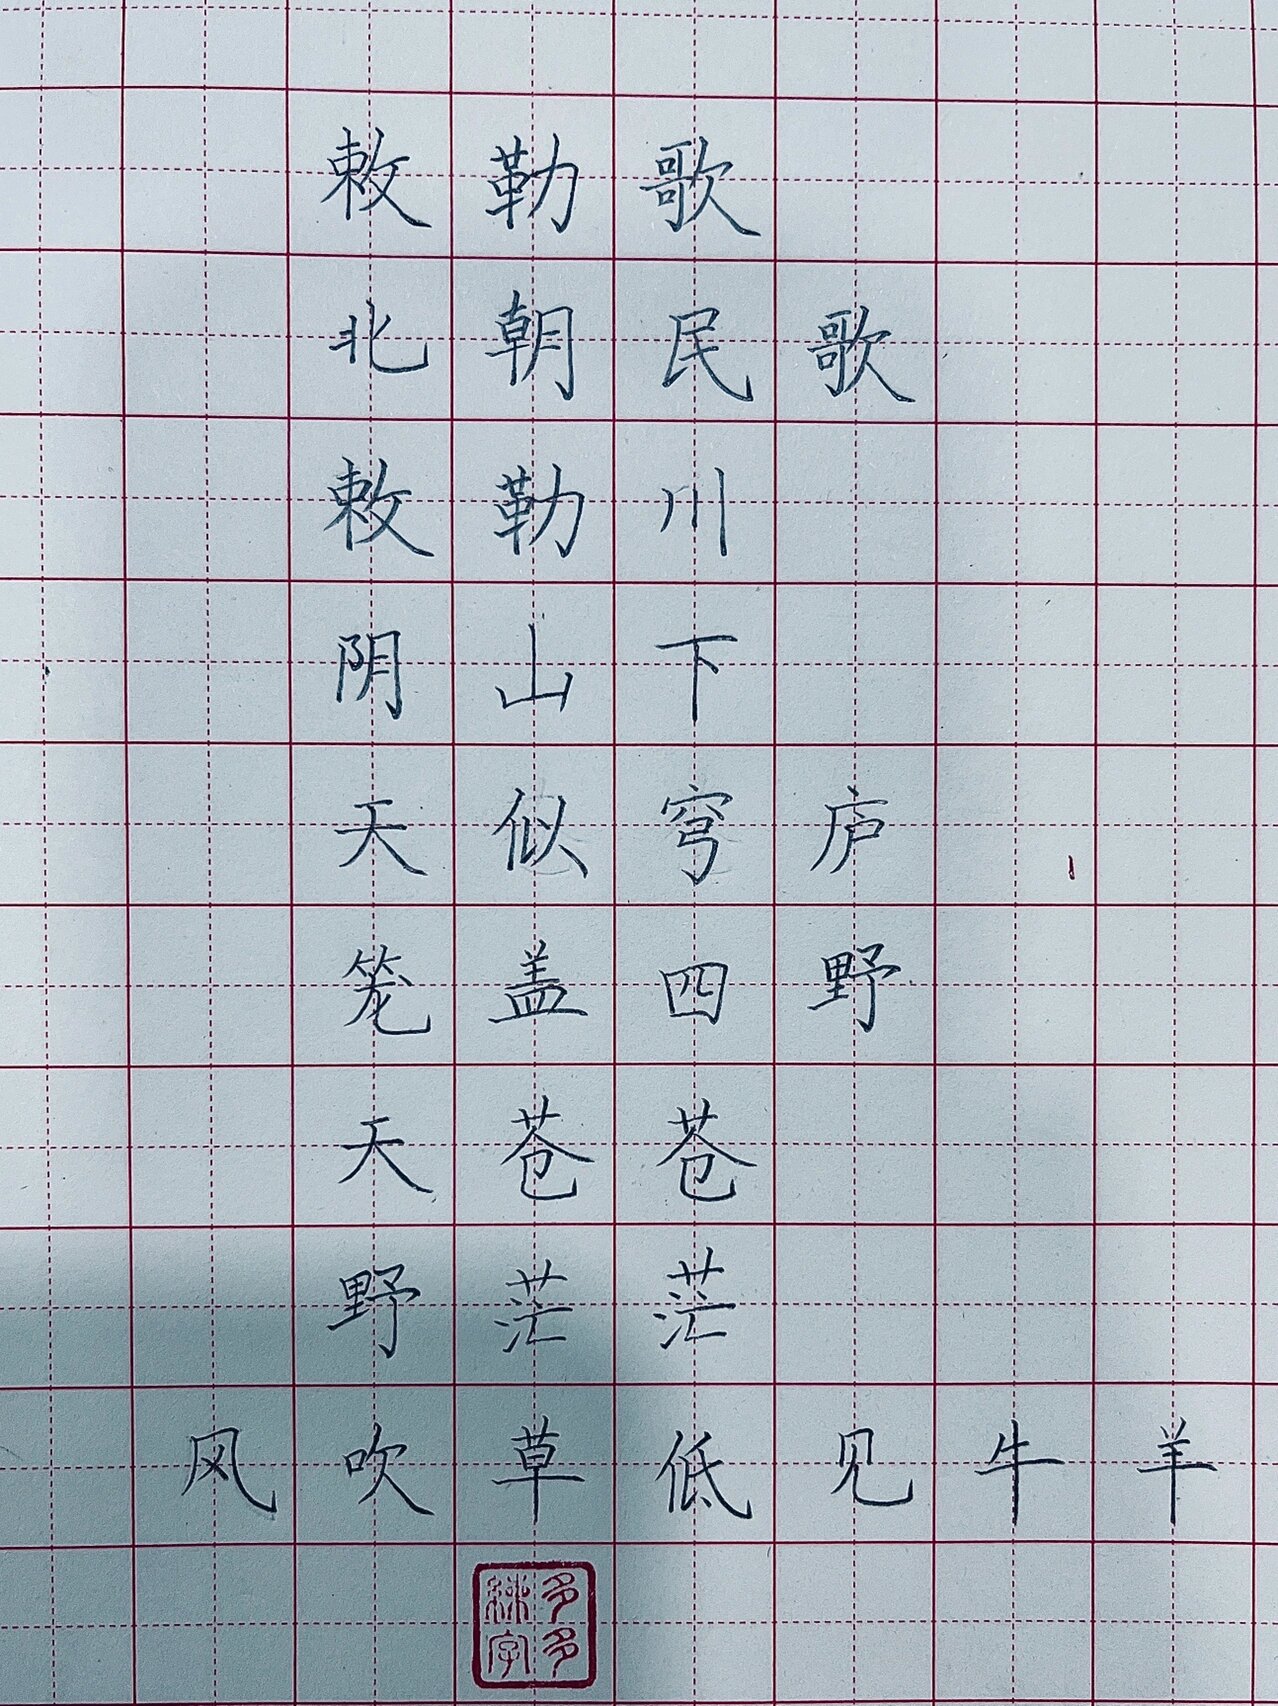 敕勒歌
北朝民歌
敕勒川
阴山下
天似穹庐
笼盖四野
天苍苍
野茫茫
风吹草低见牛羊
多多
练字